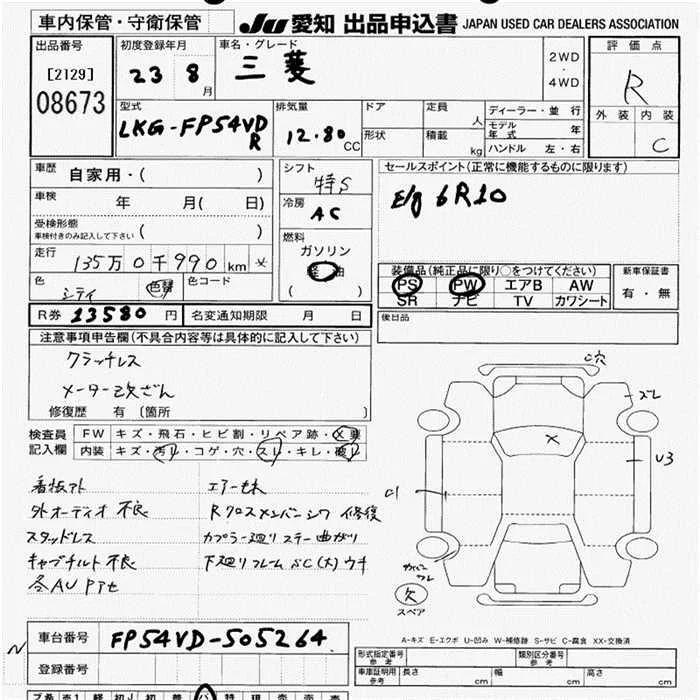 車内保管・守衛保管
JU 愛知 出品申込書 JAPAN USED CAR DEALERS ASSOCIATION
出品番号
[2129]
08673
初度登録年月
23 8 月
車名・グレード
三菱
2WD
・
4WD
評価点
R
外装 内装
C
型式
LKG-FP54VDR
排気量
12.80 CC
ドア
形状
定員
人
積載
kg
ディーラー・並行
モデル年式 年
ハンドル 左・右
車歴
自家用・( )
車検
年 月( 日)
受検形態
車検付きのみ記入して下さい ( )
走行
135万0千990km
色
シティ
色替
色コード
シフト
特S
冷房
AC
燃料
ガソリン
軽油
( )
セールスポイント(正常に機能するものに限ります)
E/g 6R10
装備品(純正品に限り○をつけてください)
PS PW エアB AW
SR ナビ TV カワシート
新車保証書
有・無
R券 13580 円
名変通知期限 月 日
後日品
注意事項申告欄(不具合箇所等は具体的に記入して下さい)
クラッチレス
メーター改ざん
修復歴 有 〔箇所 〕
検査員
記入欄
FW キズ・飛石・ヒビ割・リペア跡・X要
内装 キズ・汚れ・コゲ・穴・スレ・キレ・破れ
看板アト
外オーディオ不良
スタッドレス
キャブチルト不良
Rクロスメンバーシワ 修復
カプラー廻りステー曲がり
下廻りフレームSC(大)ウキ
穴
ズレ
X
U3
欠
スペア
A-キズ E-エクボ U-凹み W-補修跡 S-サビ C-腐食 XX-交換済
車台番号
FP54VD-505264
登録番号
型式指定番号
参考
類別区分番号
参考
車庫証明用
参考
長さ cm
幅 cm
高さ cm